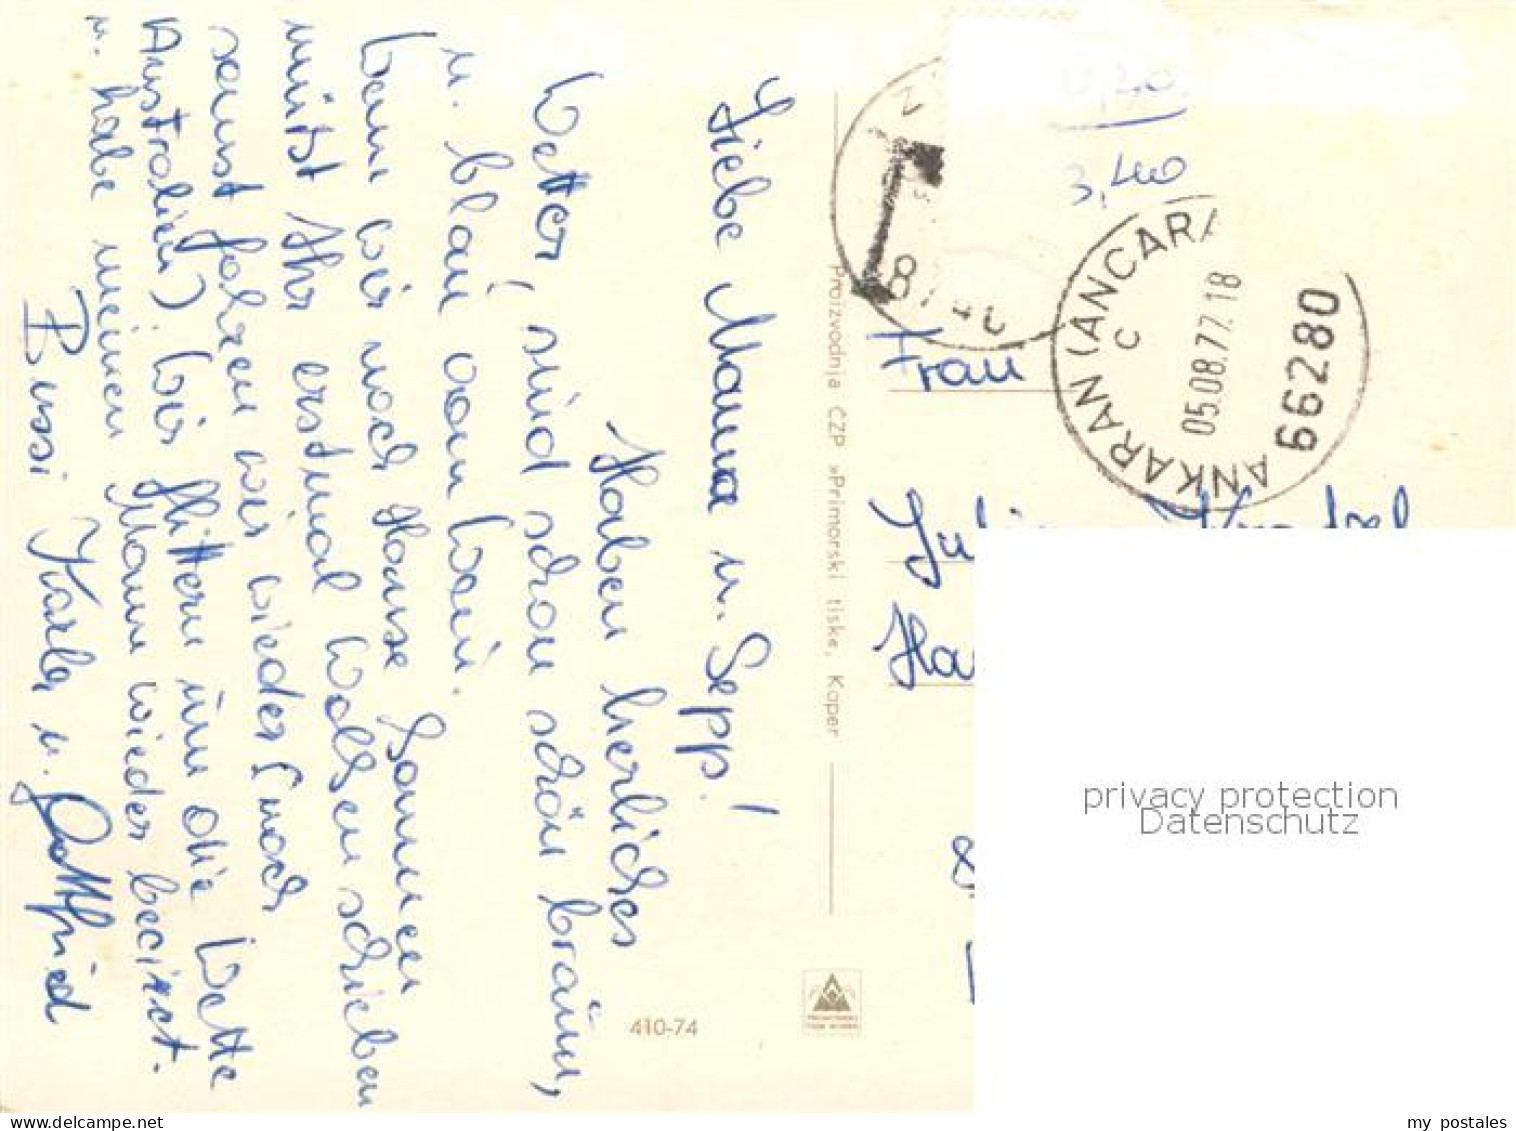 Liebe Mama u. Sepp!
Haben herrliches
Wetter, sind schon schön braun,
u. blau vom Wein.
Wenn wir nach Hause kommen
müßt Ihr erstmal Wolken schieben
sonst fahren wir wieder (nach
Australien) Wir flittern um die Wette
u. habe meinen Mann wieder beirrt.
Bussi Karla u. Gottfried
Proizvodnja ČZP »Primorski tiske, Koper
410-74
3,400
ANKARAN (ANCARA
ANKARAN
C
05.08.77.18
66280
Frau
privacy protection
Datenschutz
my postales